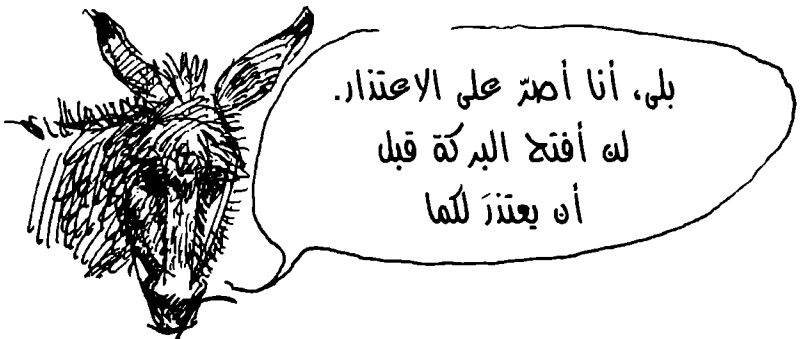 بلى، أنا أصرّ على الاعتذار.
لن أفتح البركة قبل
أن يعتذرَ لكما